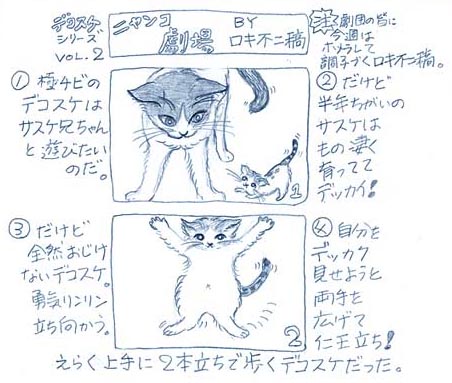 デコスケ
シリーズ
VOL.2
ニャンコ
劇場
BY
ロキ不二稿
注 劇団の皆に
今週は
ホメラレして
調子づくロキ不二稿。
① 極チビの
デコスケは
サスケ兄ちゃん
と遊びたい
のだ。
1
② だけど
半年ちがいの
サスケは
もの凄く
育ってて
デッカイ!
③ だけど
全然おじけ
ないデコスケ。
勇気リンリン
立ち向かう。
2
④ 自分を
デッカク
見せようと
両手を
広げて
仁王立ち!
えらく上手に2本立ちで歩くデコスケだった。